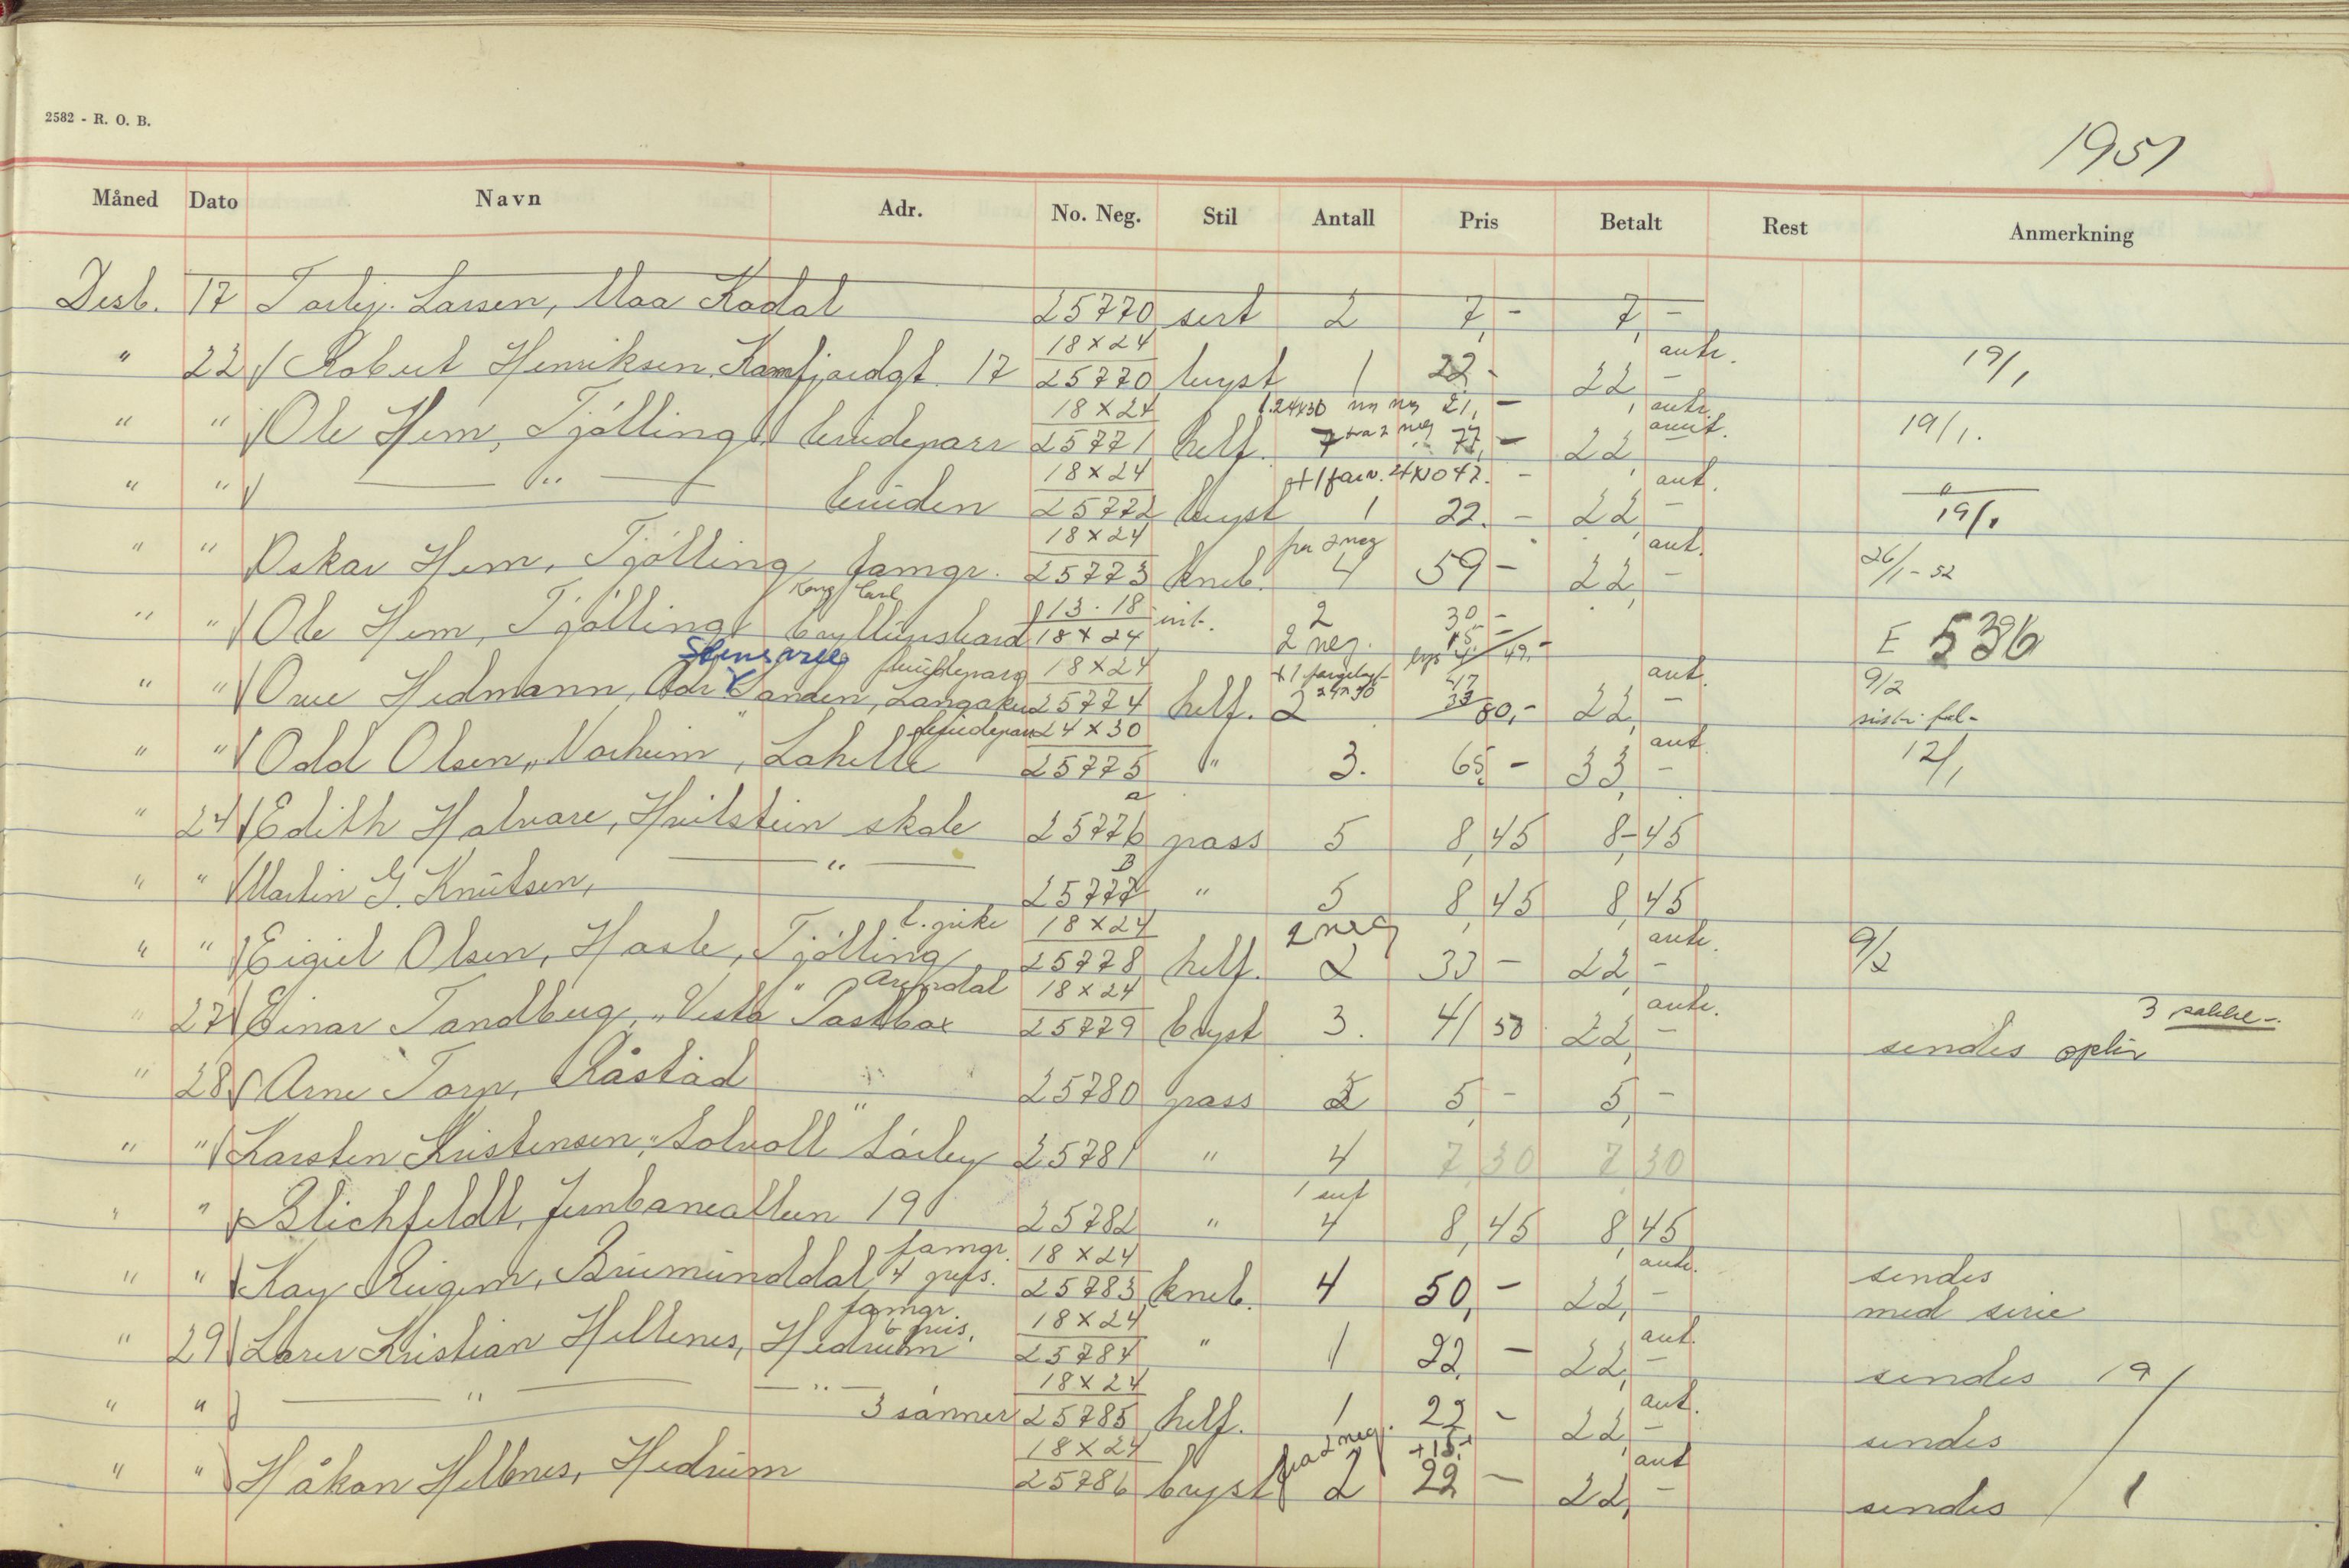 2582 - R. O. B.
1951
Måned Dato Navn Adr. No. Neg. Stil Antall Pris Betalt Rest Anmerkning
Desb. 17 Torbj. Larsen, Moa Kodal 25770 sert 2 7,- 7,-
" 22 Robert Henriksen, Kamfjordgt. 17 18x24 25770 bryst 1 22.- 22 - antr. 19/1
1 24x30 21,-
" " Ole Hem, Tjölling brudeparr 18x24 25771 helf. 7 fra 2 neg 77,- 22 - antr. 19/1.
+ 1 farv. 47.-
" " — " — bruden 18x24 25772 bryst 1 22.- 22 - ant. " 19/1
" " Oskar Hem, Tjölling famgr. 18x24 25773 kneb. fra 2 neg 4 59 - 22,- ant. 26/1-52
" " Ole Hem, Tjölling bryllupsbord 13.18 18x24 int. 2 2 neg. 30.- 15.- 49.- E 536
Stensarm
" " Orve Hedmann, Adr Sanden, Langaker brudepar 18x24 25774 helf. 2 24x30 80,- 22,- ant. 9/2
" " Odd Olsen, "Norheim", Lahelle brudepar 24x30 25775 " 3. 65,- 33,- ant. 12/1
" 24 Edith Halvare, Hvitstein skole 25776 a pass 5 8,45 8,-45
" " Martin G. Knutsen, — " — 25777 B " 5 8,45 8,45
" " Eigiel Olsen, Hasle, Tjölling 18x24 25778 helf. 2 neg 2 33 - 22,- antr. 9/2
" 27 Einar Tandberg, "Vesta" Postbox Arendal 18x24 25779 bryst 3. 41 50 22,- antr. sendes
" 28 Arne Torp, Råstad 25780 pass 2 5,- 5,-
" " Karsten Kristensen, "Solvoll" Sörby 25781 " 4 7 30 7 30
" " Blichfeldt, Jernbanealleen 19 25782 " 4 8,45 8,45
" " Kay Ringen, Brumunddal famgr. 4 pers. 18x24 25783 kneb. 4 50,- 22,- antr. sendes med serie
" 29 Lars Kristian Hellenes, Hedrum famgr. 18x24 25784 " 1 22,- 22,- ant. sendes 19/1
" " — " — — " — 3 sönner 18x24 25785 helf. 1 22 - 22,- ant. sendes
" " Håkon Hellenes, Hedrum 18x24 25786 bryst fra 2 neg. 2 +15.- 22,- 22,- ant sendes